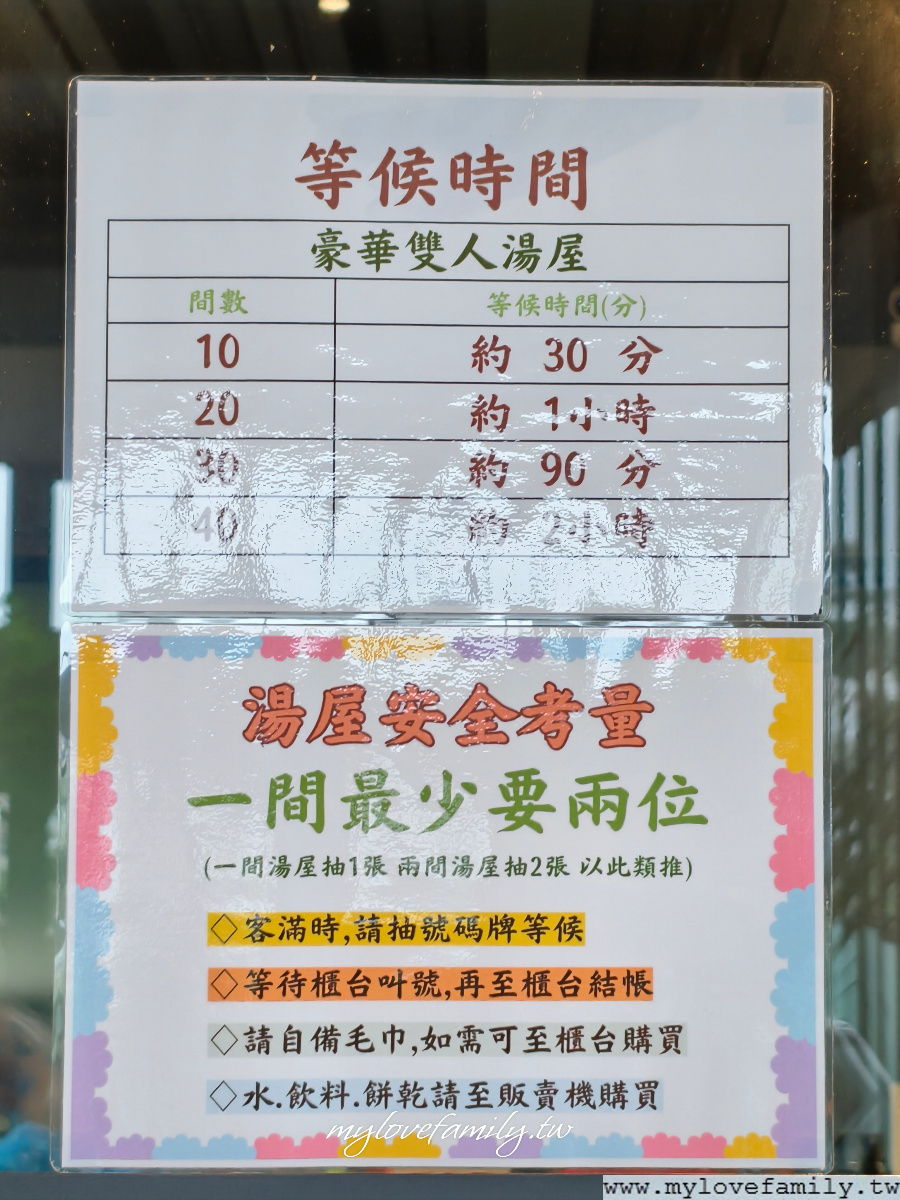 等候時間
豪華雙人湯屋
間數 等候時間(分)
10 約 30 分
20 約 1小時
30 約 90 分
40 約 2小時
湯屋安全考量
一間最少要兩位
(一間湯屋抽1張 兩間湯屋抽2張 以此類推)
◇客滿時,請抽號碼牌等候
◇等待櫃台叫號,再至櫃台結帳
◇請自備毛巾,如需可至櫃台購買
◇水.飲料.餅乾請至販賣機購買
mylovefamily.tw
www.mylovefamily.tw